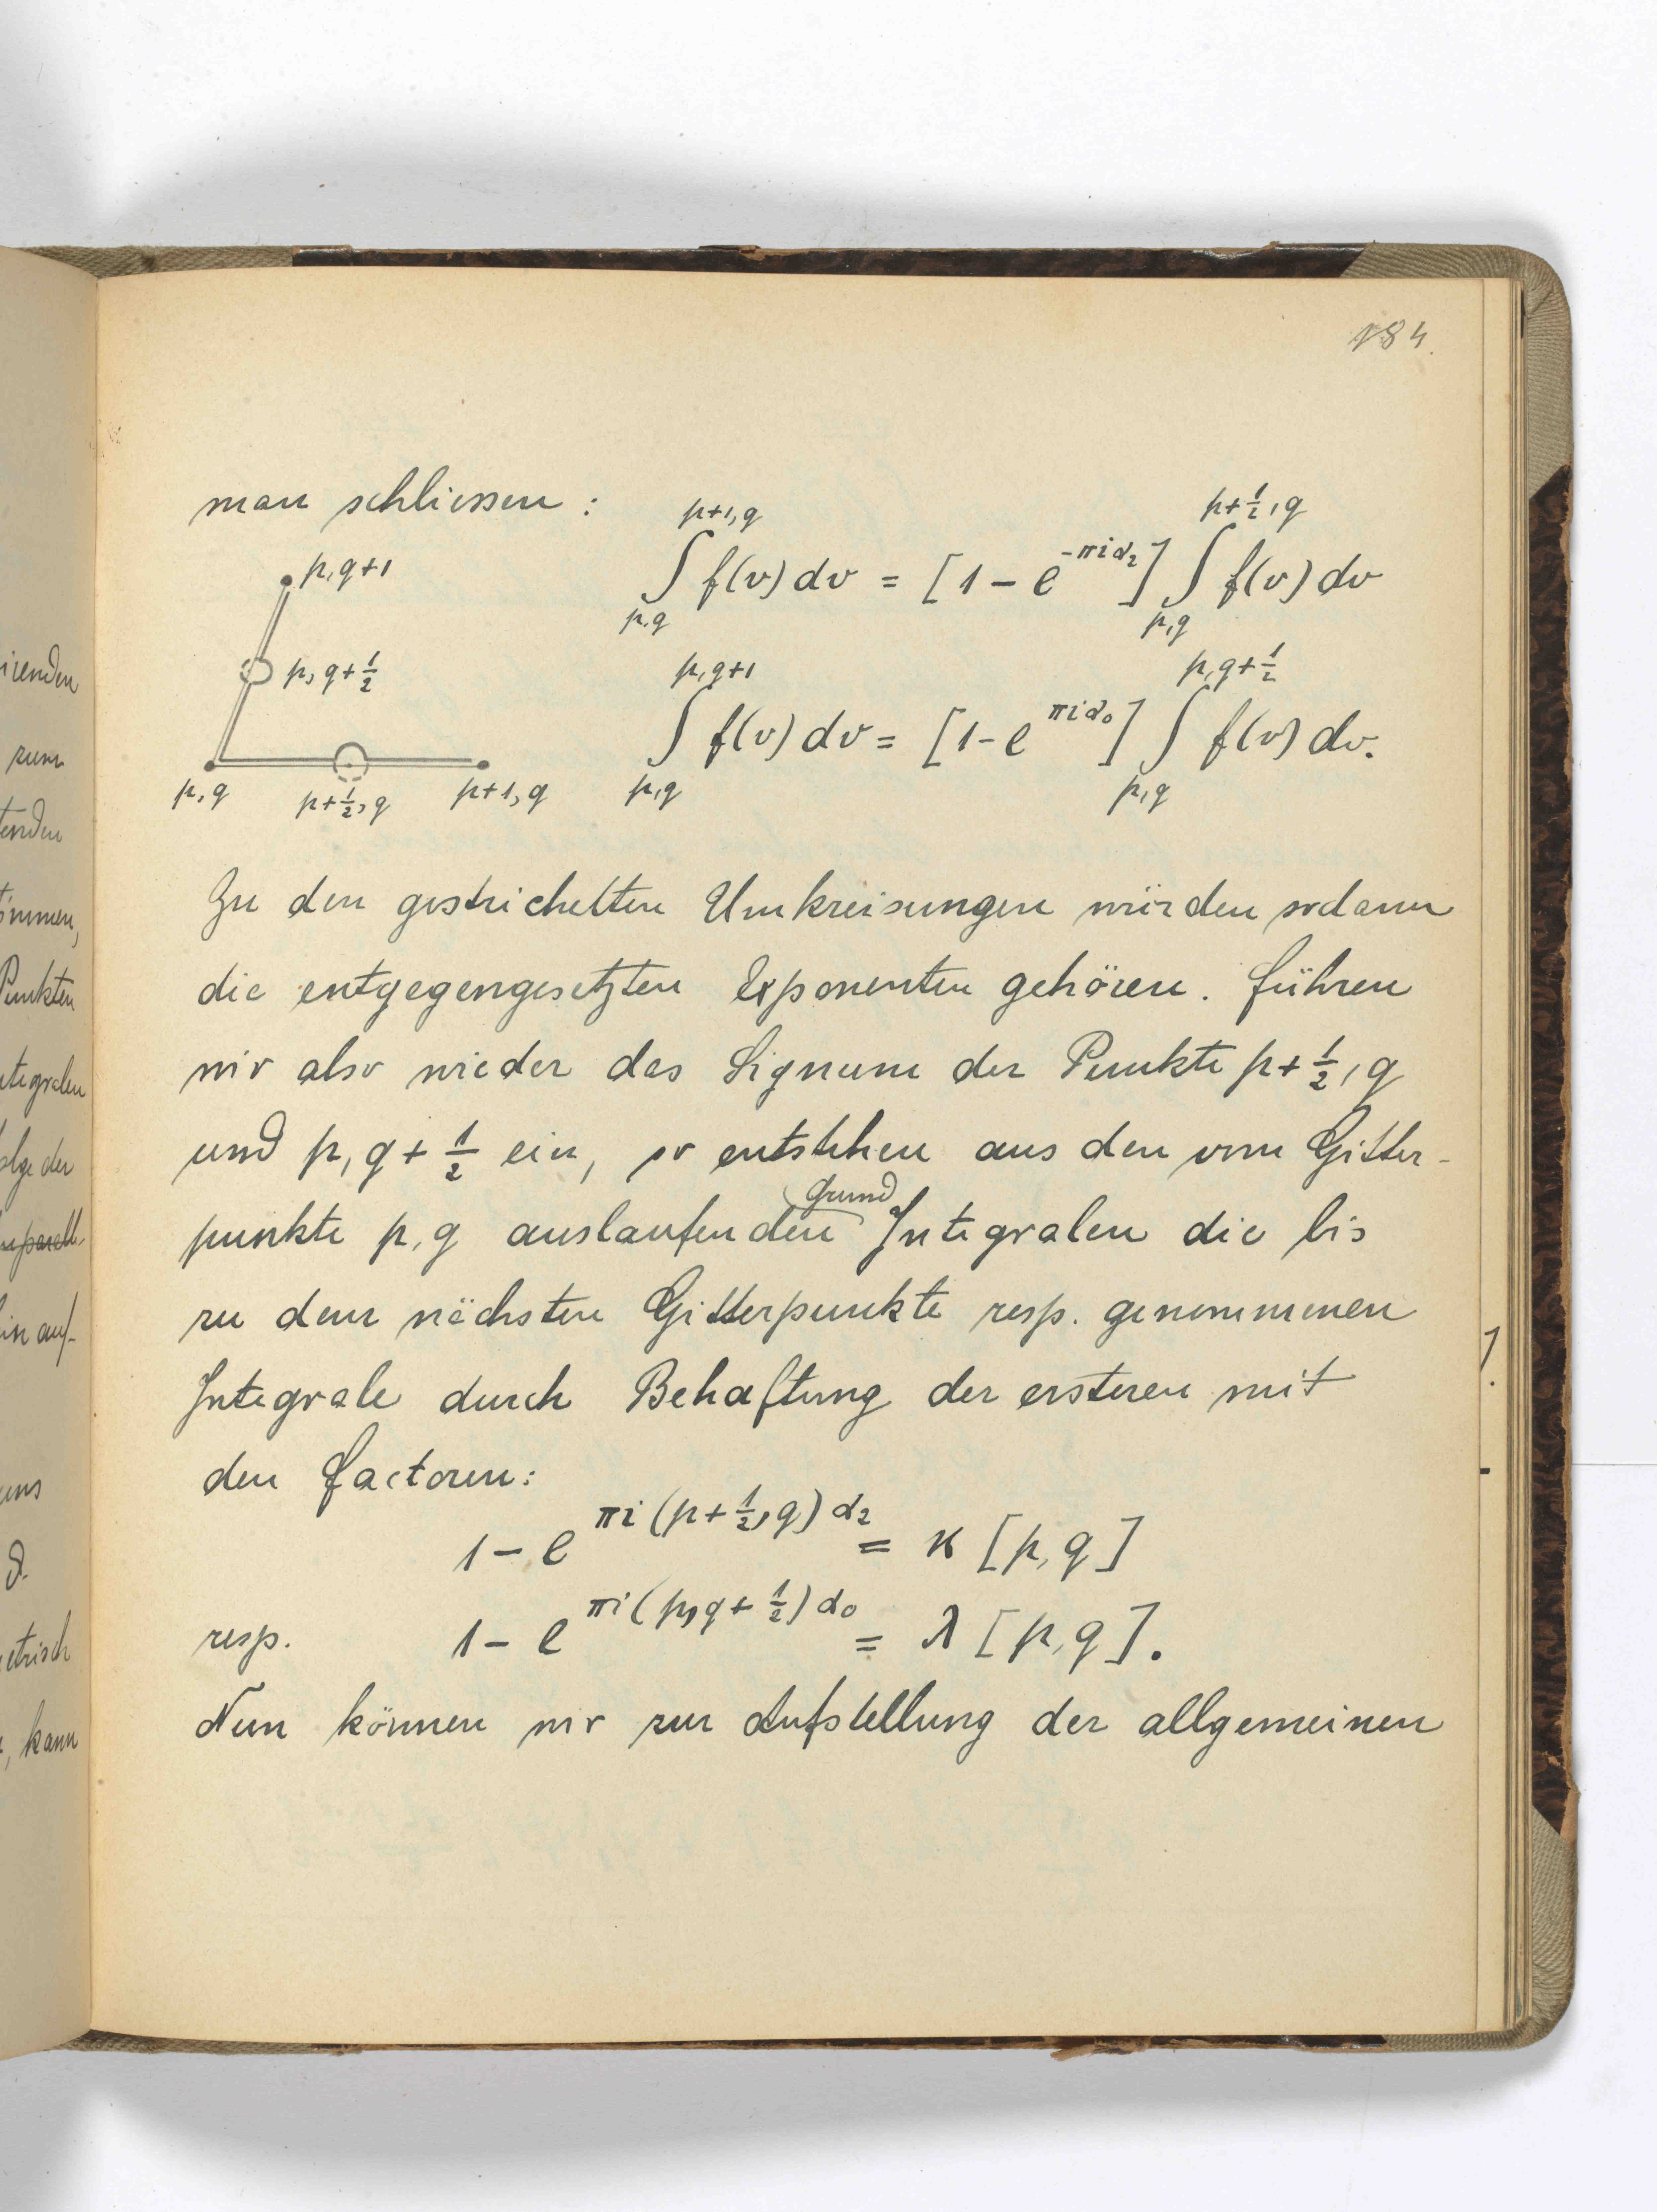 184.
man schliessen:
∫_{p,q}^{p+1,q} f(v) dv = [1 - e^{-πiα₂}] ∫_{p,q}^{p+½,q} f(v) dv
∫_{p,q}^{p,q+1} f(v) dv = [1 - e^{πiα₀}] ∫_{p,q}^{p,q+½} f(v) dv.
p,q+1
p, q+½
p,q
p+½, q
p+1, q
Zu den gestrichelten Umkreisungen würden sodann
die entgegengesetzten Exponenten gehören. Führen
wir also wieder das Signum der Punkte p+½, q
und p, q+½ ein, so entstehen aus den vom Gitter-
punkte p,q auslaufenden Grund Integralen die bis
zu dem nächsten Gitterpunkte resp. genommenen
Integrale durch Behaftung der ersteren mit
den Factoren:
1 - e^{πi(p+½,q)α₂} = κ[p,q]
resp. 1 - e^{πi(p,q+½)α₀} = λ[p,q].
Nun können wir zur Aufstellung der allgemeinen
irenden
zum
tenden
immen,
Punkten
ntegralen
olge der
in auf-
uns
etrisch
, kann